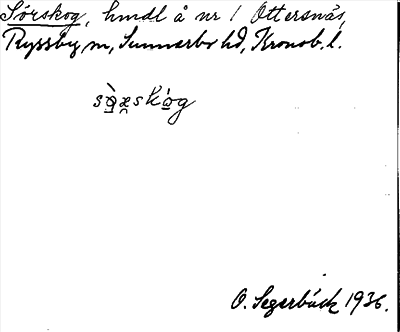 Sörskog, hmdl å nr 1 Ottersnäs,
Ryssby, m, Sunnerbo hd, Kronob. l.
O. Segerbäck 1936.